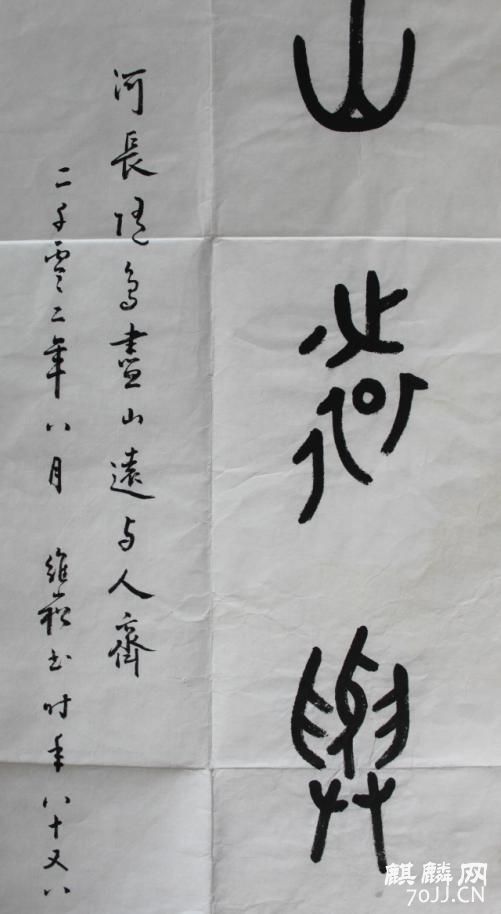 山遠與
河長隨鳥盡山遠与人齊
二千零二年八月 維崧书时年八十又八
麒麟网
70JJ.CN